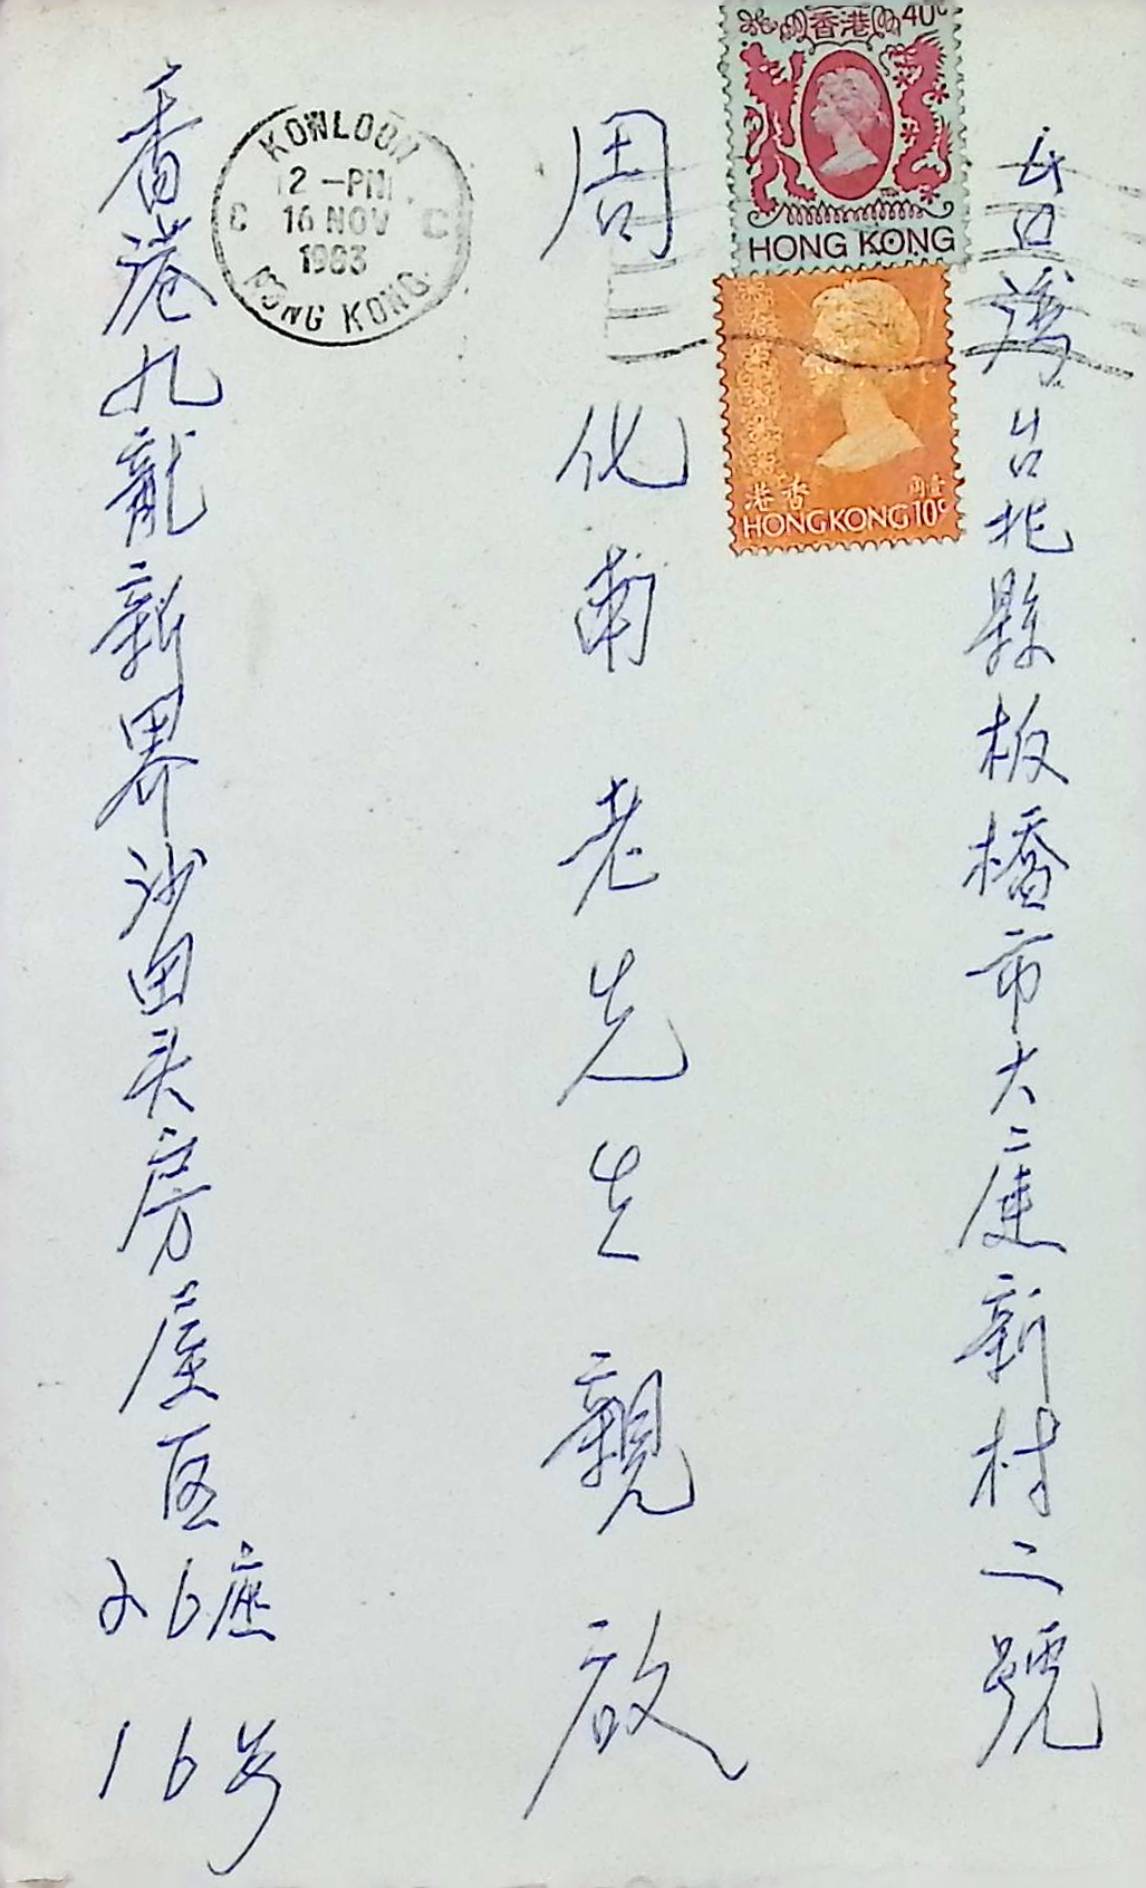 台灣台北縣板橋市大庭新村二號
周化南老先生親啟
香港九龍新界沙田头房屋区
26座
16号
KOWLOON
12 -PM
C 16 NOV C
1983
HONG KONG
香港 40c
HONG KONG
香港 壹角
HONG KONG 10c